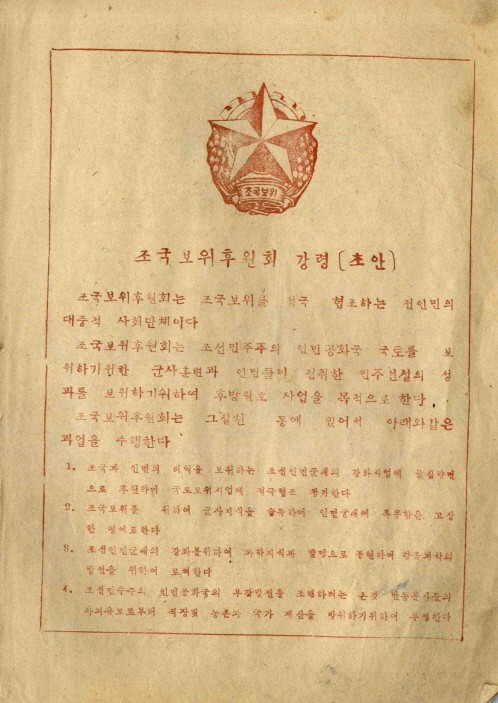 조국보위
조국보위후원회 강령 (초안)
조국보위후원회는 조국보위를 적극 협조하는 전인민의
대중적 사회단체이다
조국보위후원회는 조선민주주의 인민공화국 국토를 보
위하기위한 군사훈련과 인민들이 쟁취한 민주건설의 성
과를 보위하기위하여 후방원호 사업을 목적으로 한다
조국보위후원회는 그실천 동에 있어서 아래와같은
과업을 수행한다
1. 조국과 인민의 리익을 보위하는 조선인민군대의 강화사업에 물심량면
으로 후원하며 국토보위사업에 적극협조 참가한다
2. 조국보위를 위하여 군사지식을 습득하며 인민군대에 복무함을 고상
한 영예로한다
3. 조선인민군대의 강화를위하여 과학지식과 발명으로 동원하며 과학의
발전을 위하여 로력한다
4. 조선민주주의 인민공화국의 부강발전을 조해하려는 온갖 반동분자들의
파괴음모로부터 직장및 농촌과 국가 재산을 방위하기위하여 투쟁한다